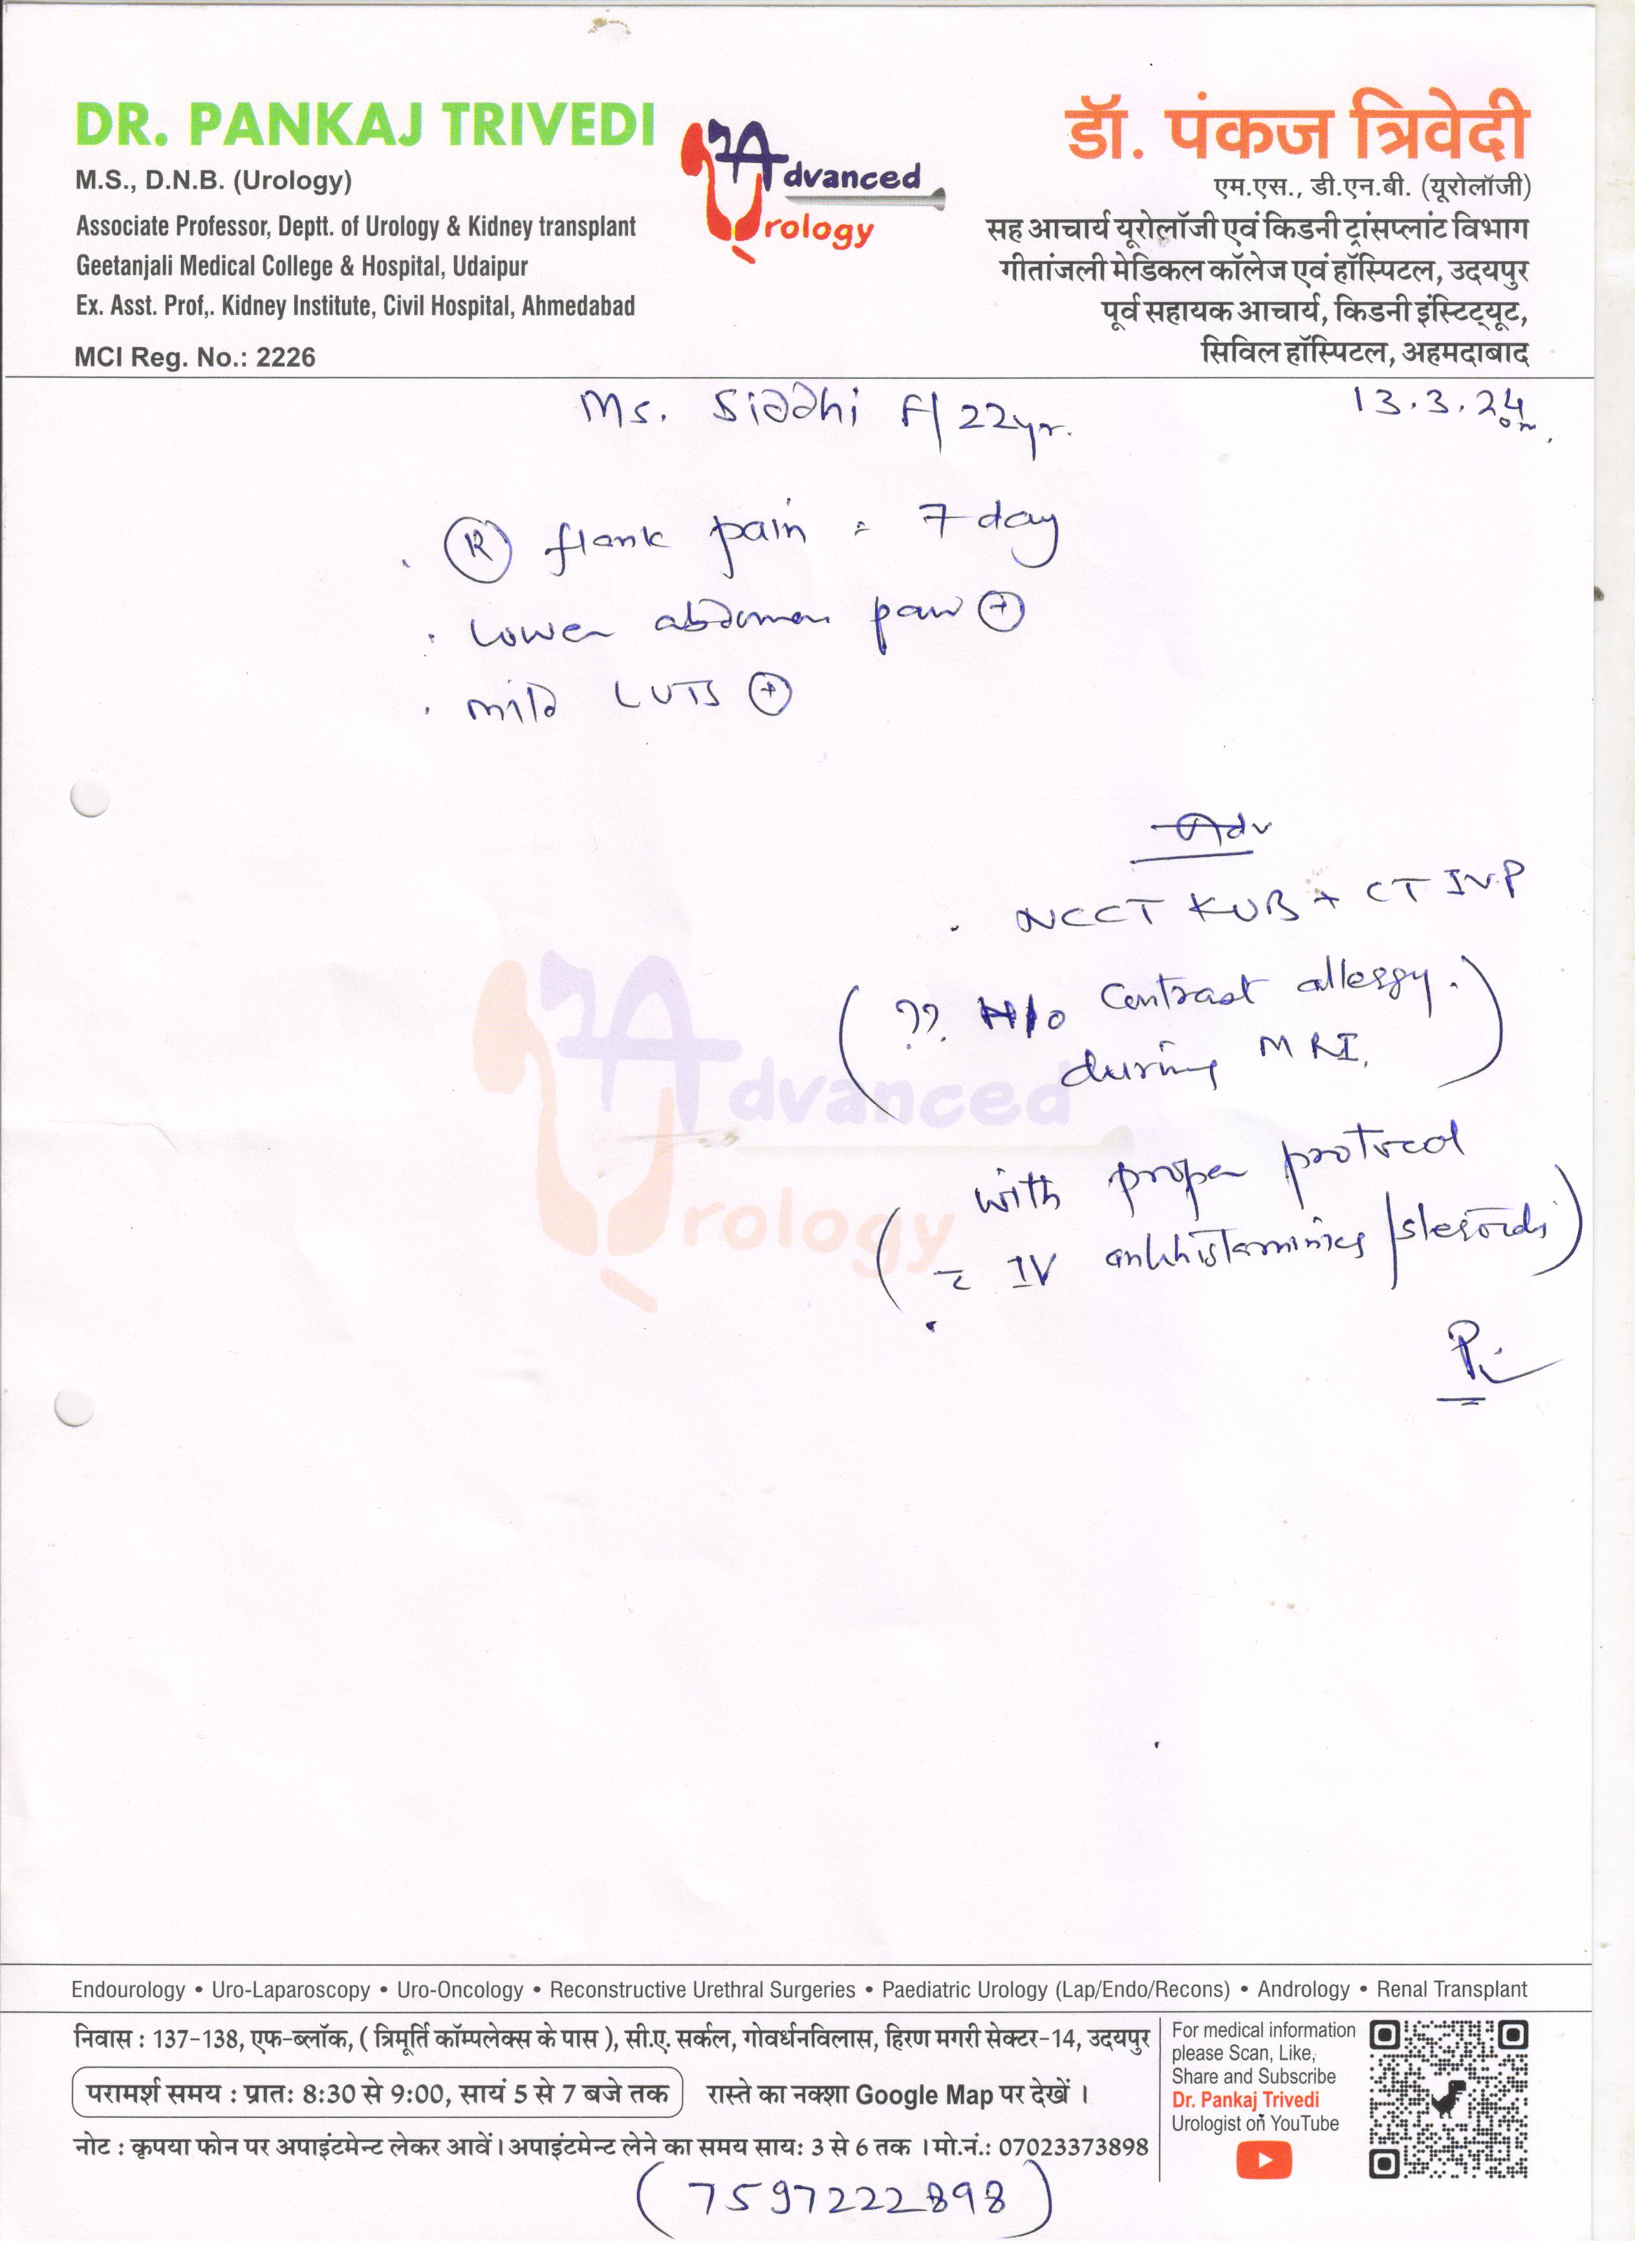 DR. PANKAJ TRIVEDI
M.S., D.N.B. (Urology)
Associate Professor, Deptt. of Urology & Kidney transplant
Geetanjali Medical College & Hospital, Udaipur
Ex. Asst. Prof,. Kidney Institute, Civil Hospital, Ahmedabad
MCI Reg. No.: 2226
Advanced
Urology
डॉ. पंकज त्रिवेदी
एम.एस., डी.एन.बी. (यूरोलॉजी)
सह आचार्य यूरोलॉजी एवं किडनी ट्रांसप्लांट विभाग
गीतांजली मेडिकल कॉलेज एवं हॉस्पिटल, उदयपुर
पूर्व सहायक आचार्य, किडनी इंस्टिट्यूट,
सिविल हॉस्पिटल, अहमदाबाद
Ms. Siddhi F/22yr. 13.3.24
(R) flank pain = 7 day
. Lower abdomen pain (+)
. mild LUTS (+)
Adv
. NCCT KUB + CT IVP
(?? H/o Contrast allergy.
during MRI.)
with proper protocol
(= IV antihistaminics/steroids)
Advanced
Urology
Endourology • Uro-Laparoscopy • Uro-Oncology • Reconstructive Urethral Surgeries • Paediatric Urology (Lap/Endo/Recons) • Andrology • Renal Transplant
निवास : 137-138, एफ-ब्लॉक, ( त्रिमूर्ति कॉम्पलेक्स के पास ), सी.ए. सर्कल, गोवर्धनविलास, हिरण मगरी सेक्टर-14, उदयपुर
परामर्श समय : प्रातः 8:30 से 9:00, सायं 5 से 7 बजे तक रास्ते का नक्शा Google Map पर देखें ।
नोट : कृपया फोन पर अपाइंटमेन्ट लेकर आवें। अपाइंटमेन्ट लेने का समय सायः 3 से 6 तक । मो.नं.: 07023373898
(7597222898)
For medical information
please Scan, Like,
Share and Subscribe
Dr. Pankaj Trivedi
Urologist on YouTube